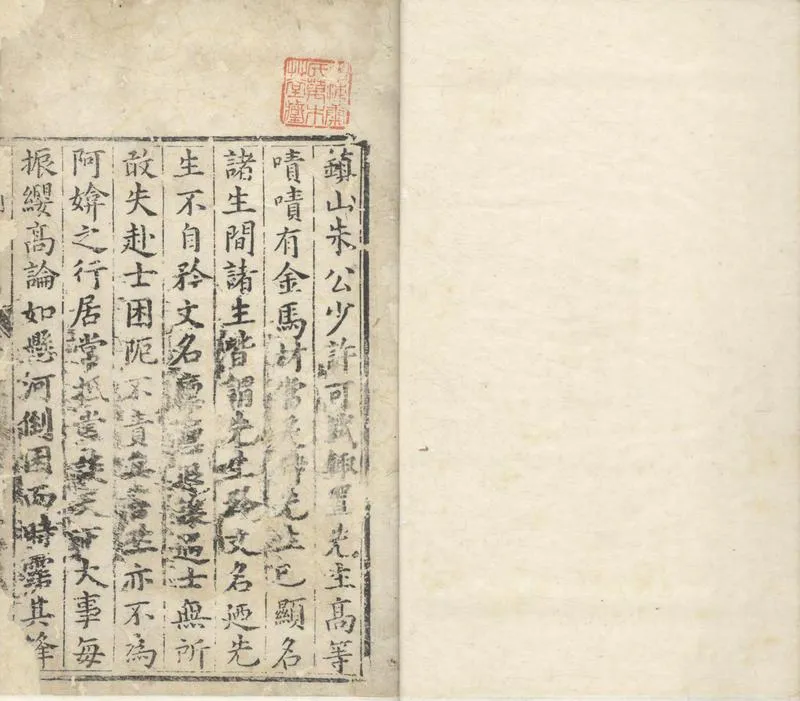 鎮山朱公少許可試輙置先生髙等
嘖嘖有金馬材當是時先生已顯名
諸生間諸生皆謂先生矜文名廼先
生不自矜文名退讓遇士無所
敢失赴士困阨不責亦不為
阿媕之行居常抵掌談天下大事每
振纓髙論如懸河倒囷而時其